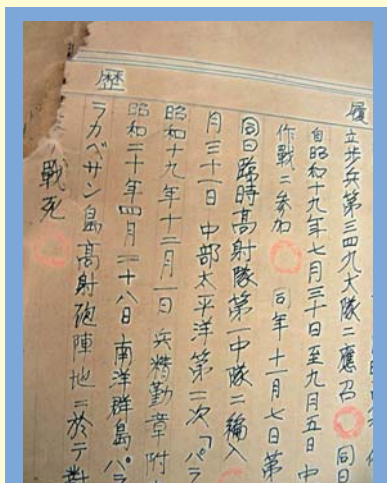 履歴
立歩兵第三四九大隊ニ應召 同日
自昭和十九年七月三十日至九月五日 中
作戦ニ参加 同年十一月七日第
同日臨時高射隊第一中隊ニ編入
月三十一日 中部太平洋第二次「パラ
昭和十九年十二月一日 兵精勤章附
昭和二十年四月二十八日 南洋群島パラ
ラカベサン島高射砲陣地ニ於テ對
戦死